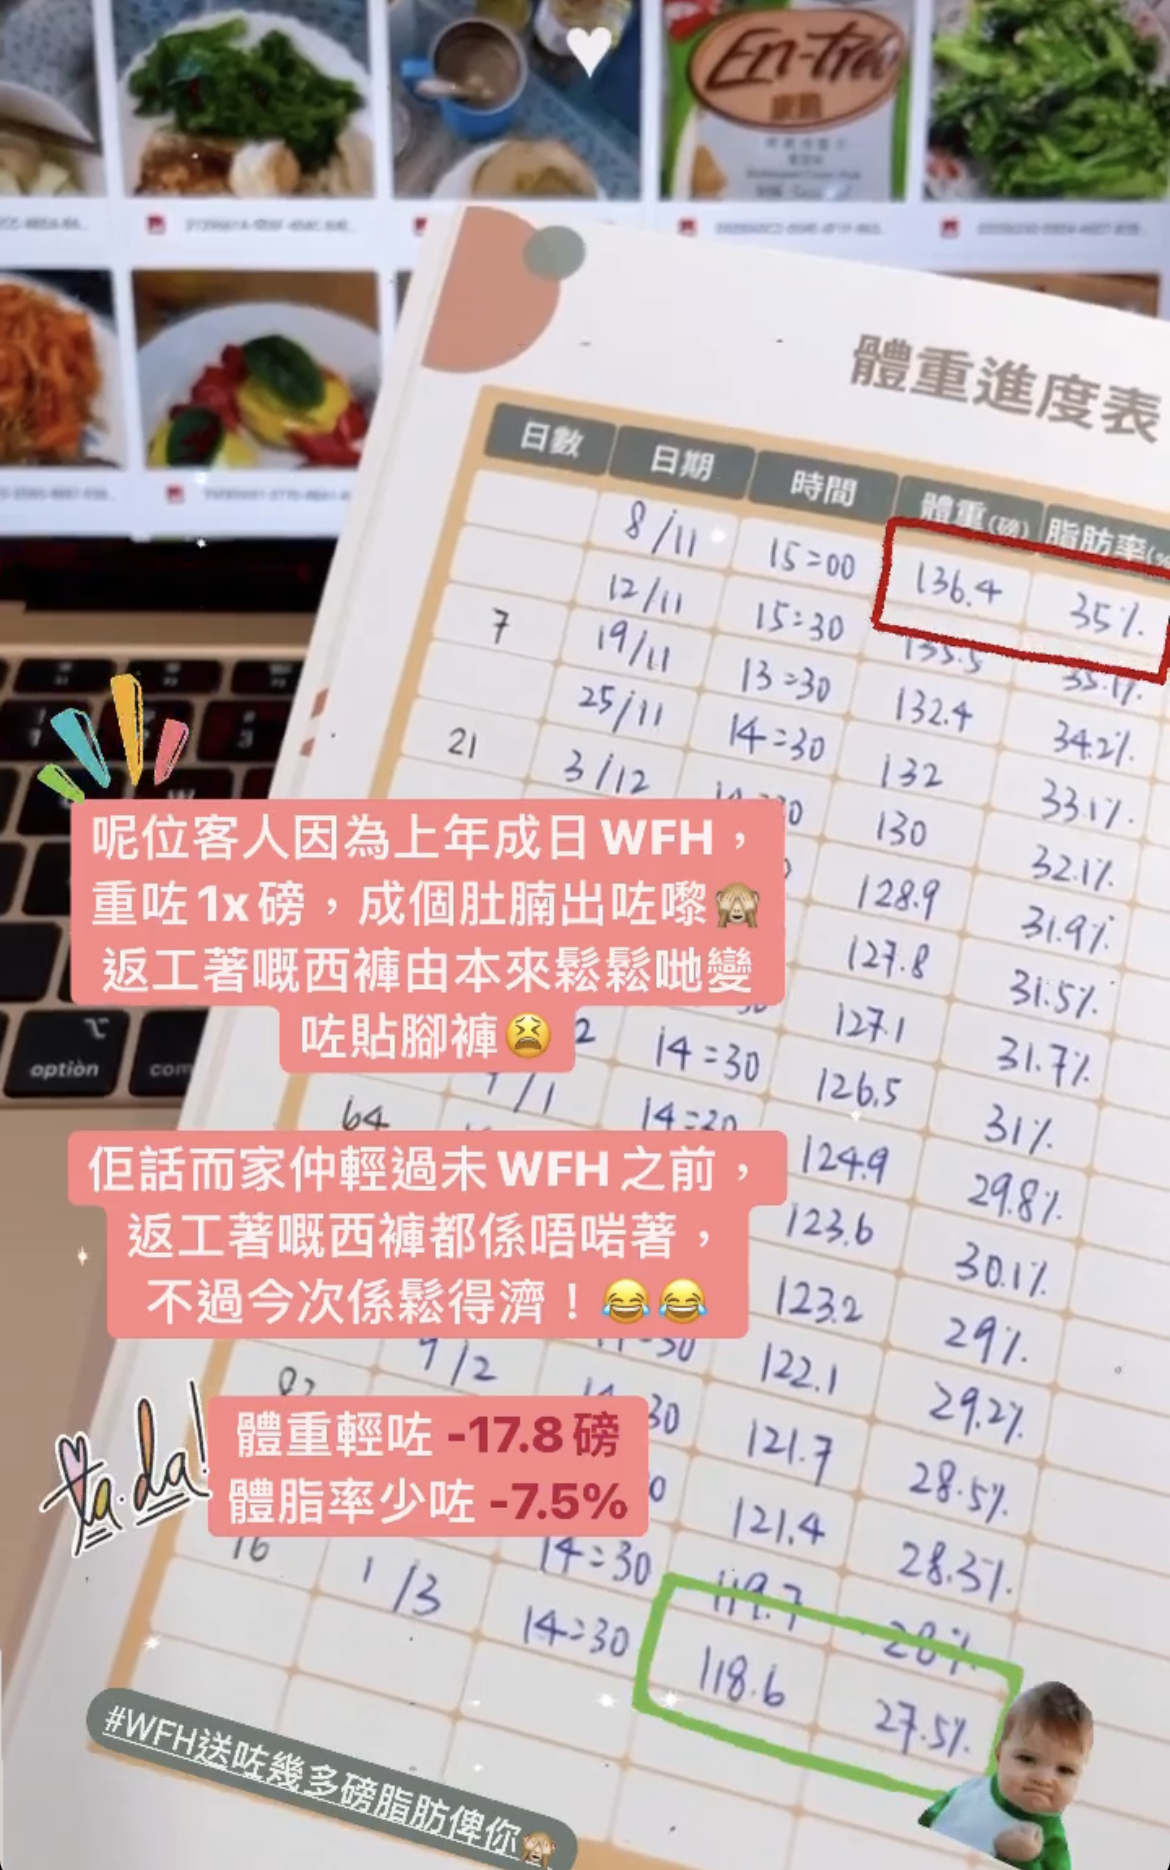 En-tra
康營
體重進度表
日數 日期 時間 體重(磅) 脂肪率
8/11 15:00 136.4 35%
12/11 15:30 135.5 35.1%
7 19/11 13:30 132.4 34.2%
25/11 14:30 132 33.1%
21 3/12 130 32.1%
128.9 31.9%
127.8 31.5%
127.1 31.7%
14:30 126.5 31%
64 14:30 124.9 29.8%
123.6 30.1%
123.2 29%
9/2 122.1 29.2%
121.7 28.5%
121.4 28.3%
14:30 119.7 28%
1/3 14:30 118.6 27.5%
option
呢位客人因為上年成日WFH，
重咗1x磅，成個肚腩出咗嚟🙈
返工著嘅西褲由本來鬆鬆哋變
咗貼腳褲😫
佢話而家仲輕過未WFH之前，
返工著嘅西褲都係唔啱著，
不過今次係鬆得濟！😂😂
ta.da!
體重輕咗 -17.8磅
體脂率少咗 -7.5%
#WFH送咗幾多磅脂肪俾你🙈